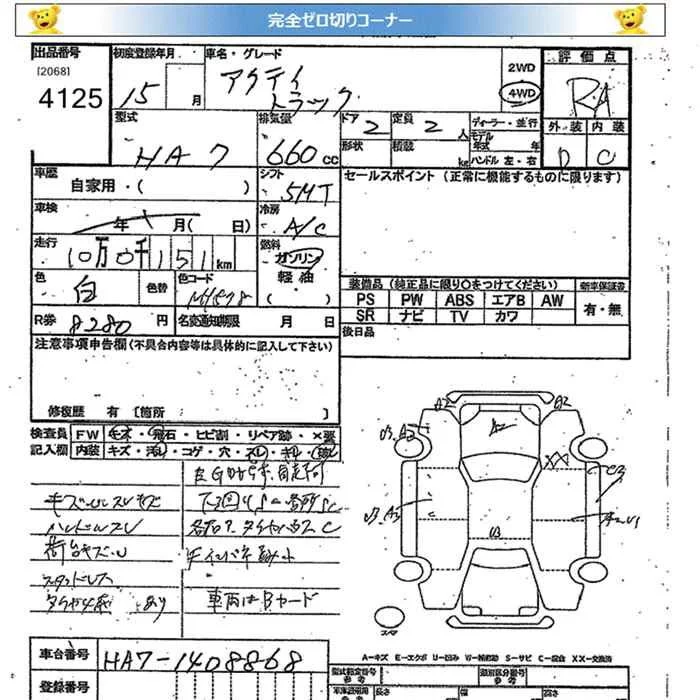 完全ゼロ切りコーナー
出品番号 初度登録年月 車名・グレード 評価点
[2068] アクティ 2WD
4125 15 月 トラック 4WD RA
型式 排気量 ドア 2 定員 2 人 ディーラー・並行 外装 内装
HA7 660cc 形状 積載 kg モデル年式 年 D C
ハンドル 左・右
車歴 シフト セールスポイント(正常に機能するものに限ります)
自家用・( ) 5MT
車検 年 月( 日) 冷房 A/C
走行 10万0千151km 燃料 ガソリン
軽油
色 白 色替 色コード NH578 装備品(純正品に限り○をつけてください) 新車保証書
PS PW ABS エアB AW 有・無
R券 8280円 名変通知期限 月 日 SR ナビ TV カワ
後日品
注意事項申告欄(不具合内容等は具体的に記入して下さい)
修復歴 有〔箇所 〕
検査員 FW キズ・飛石・ヒビ割・リペア跡・×要
記入欄 内装 キズ・汚レ・コゲ・穴・スレ・キレ
キズ
ハンドルスレ
荷台キズU
スタッドレス
タイヤ4本 あり 車両はBカード
A2 A2
A3
U3
スマ
A-キズ E-エクボ U-凹み W-補修跡 S-サビ C-腐食 XX-交換済
車台番号 HA7-1408868 型式指定番号 類別区分番号
登録番号 参考 長さ 幅 高さ